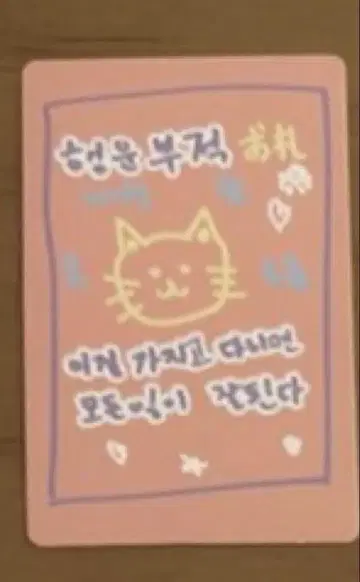 행운 부적 お札
이걸 가지고 다니면
모든일이 잘된다